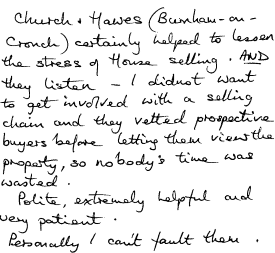 Church & Hawes (Burnham-on-
Crouch) certainly helped to lessen
the stress of House selling. AND
they listen - I did not want
to get involved with a selling
chain and they vetted prospective
buyers before letting them view the
property, so nobody's time was
wasted.
Polite, extremely helpful and
very patient.
Personally I can't fault them.